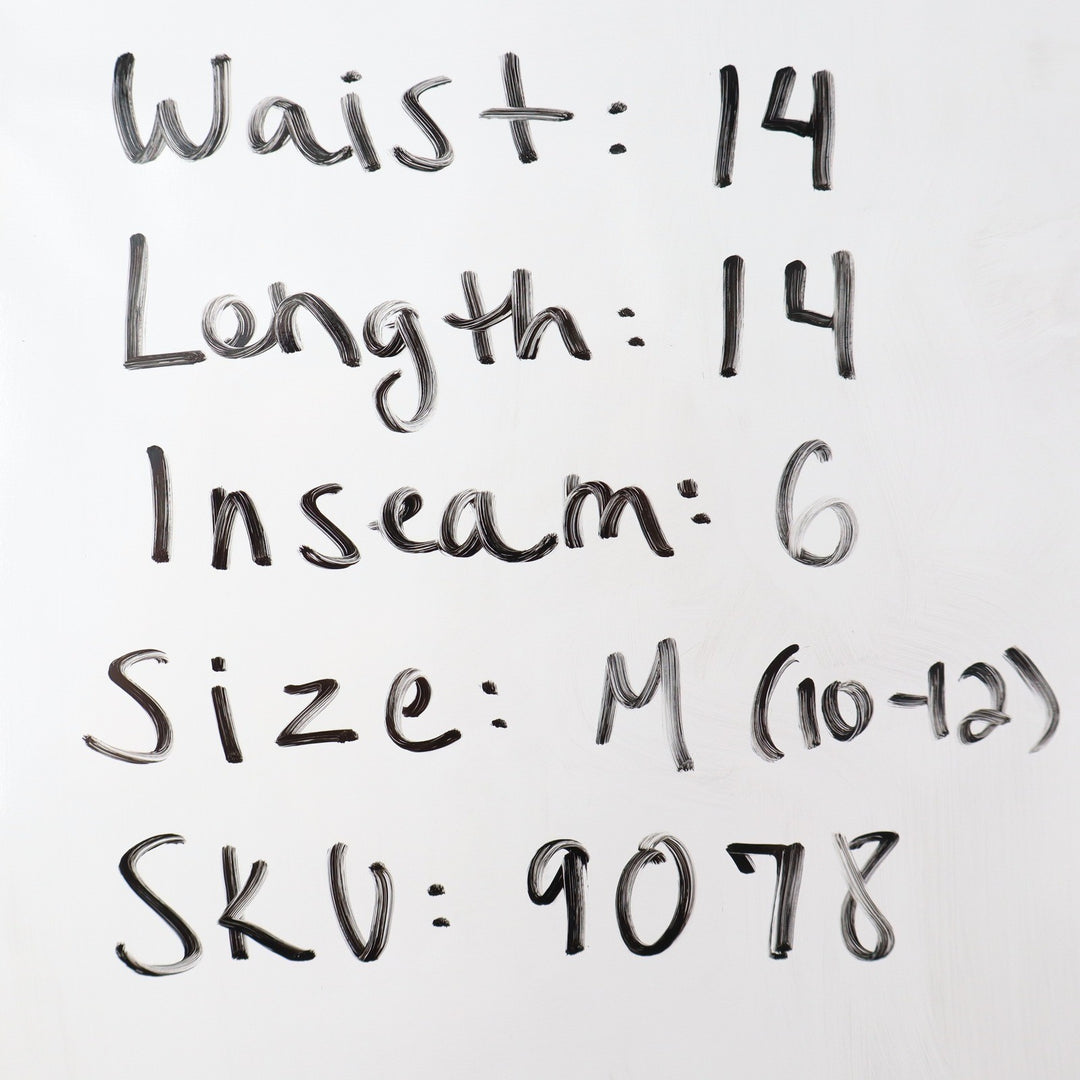 Waist: 14
Length: 14
Inseam: 6
Size: M (10-12)
SKU: 9078